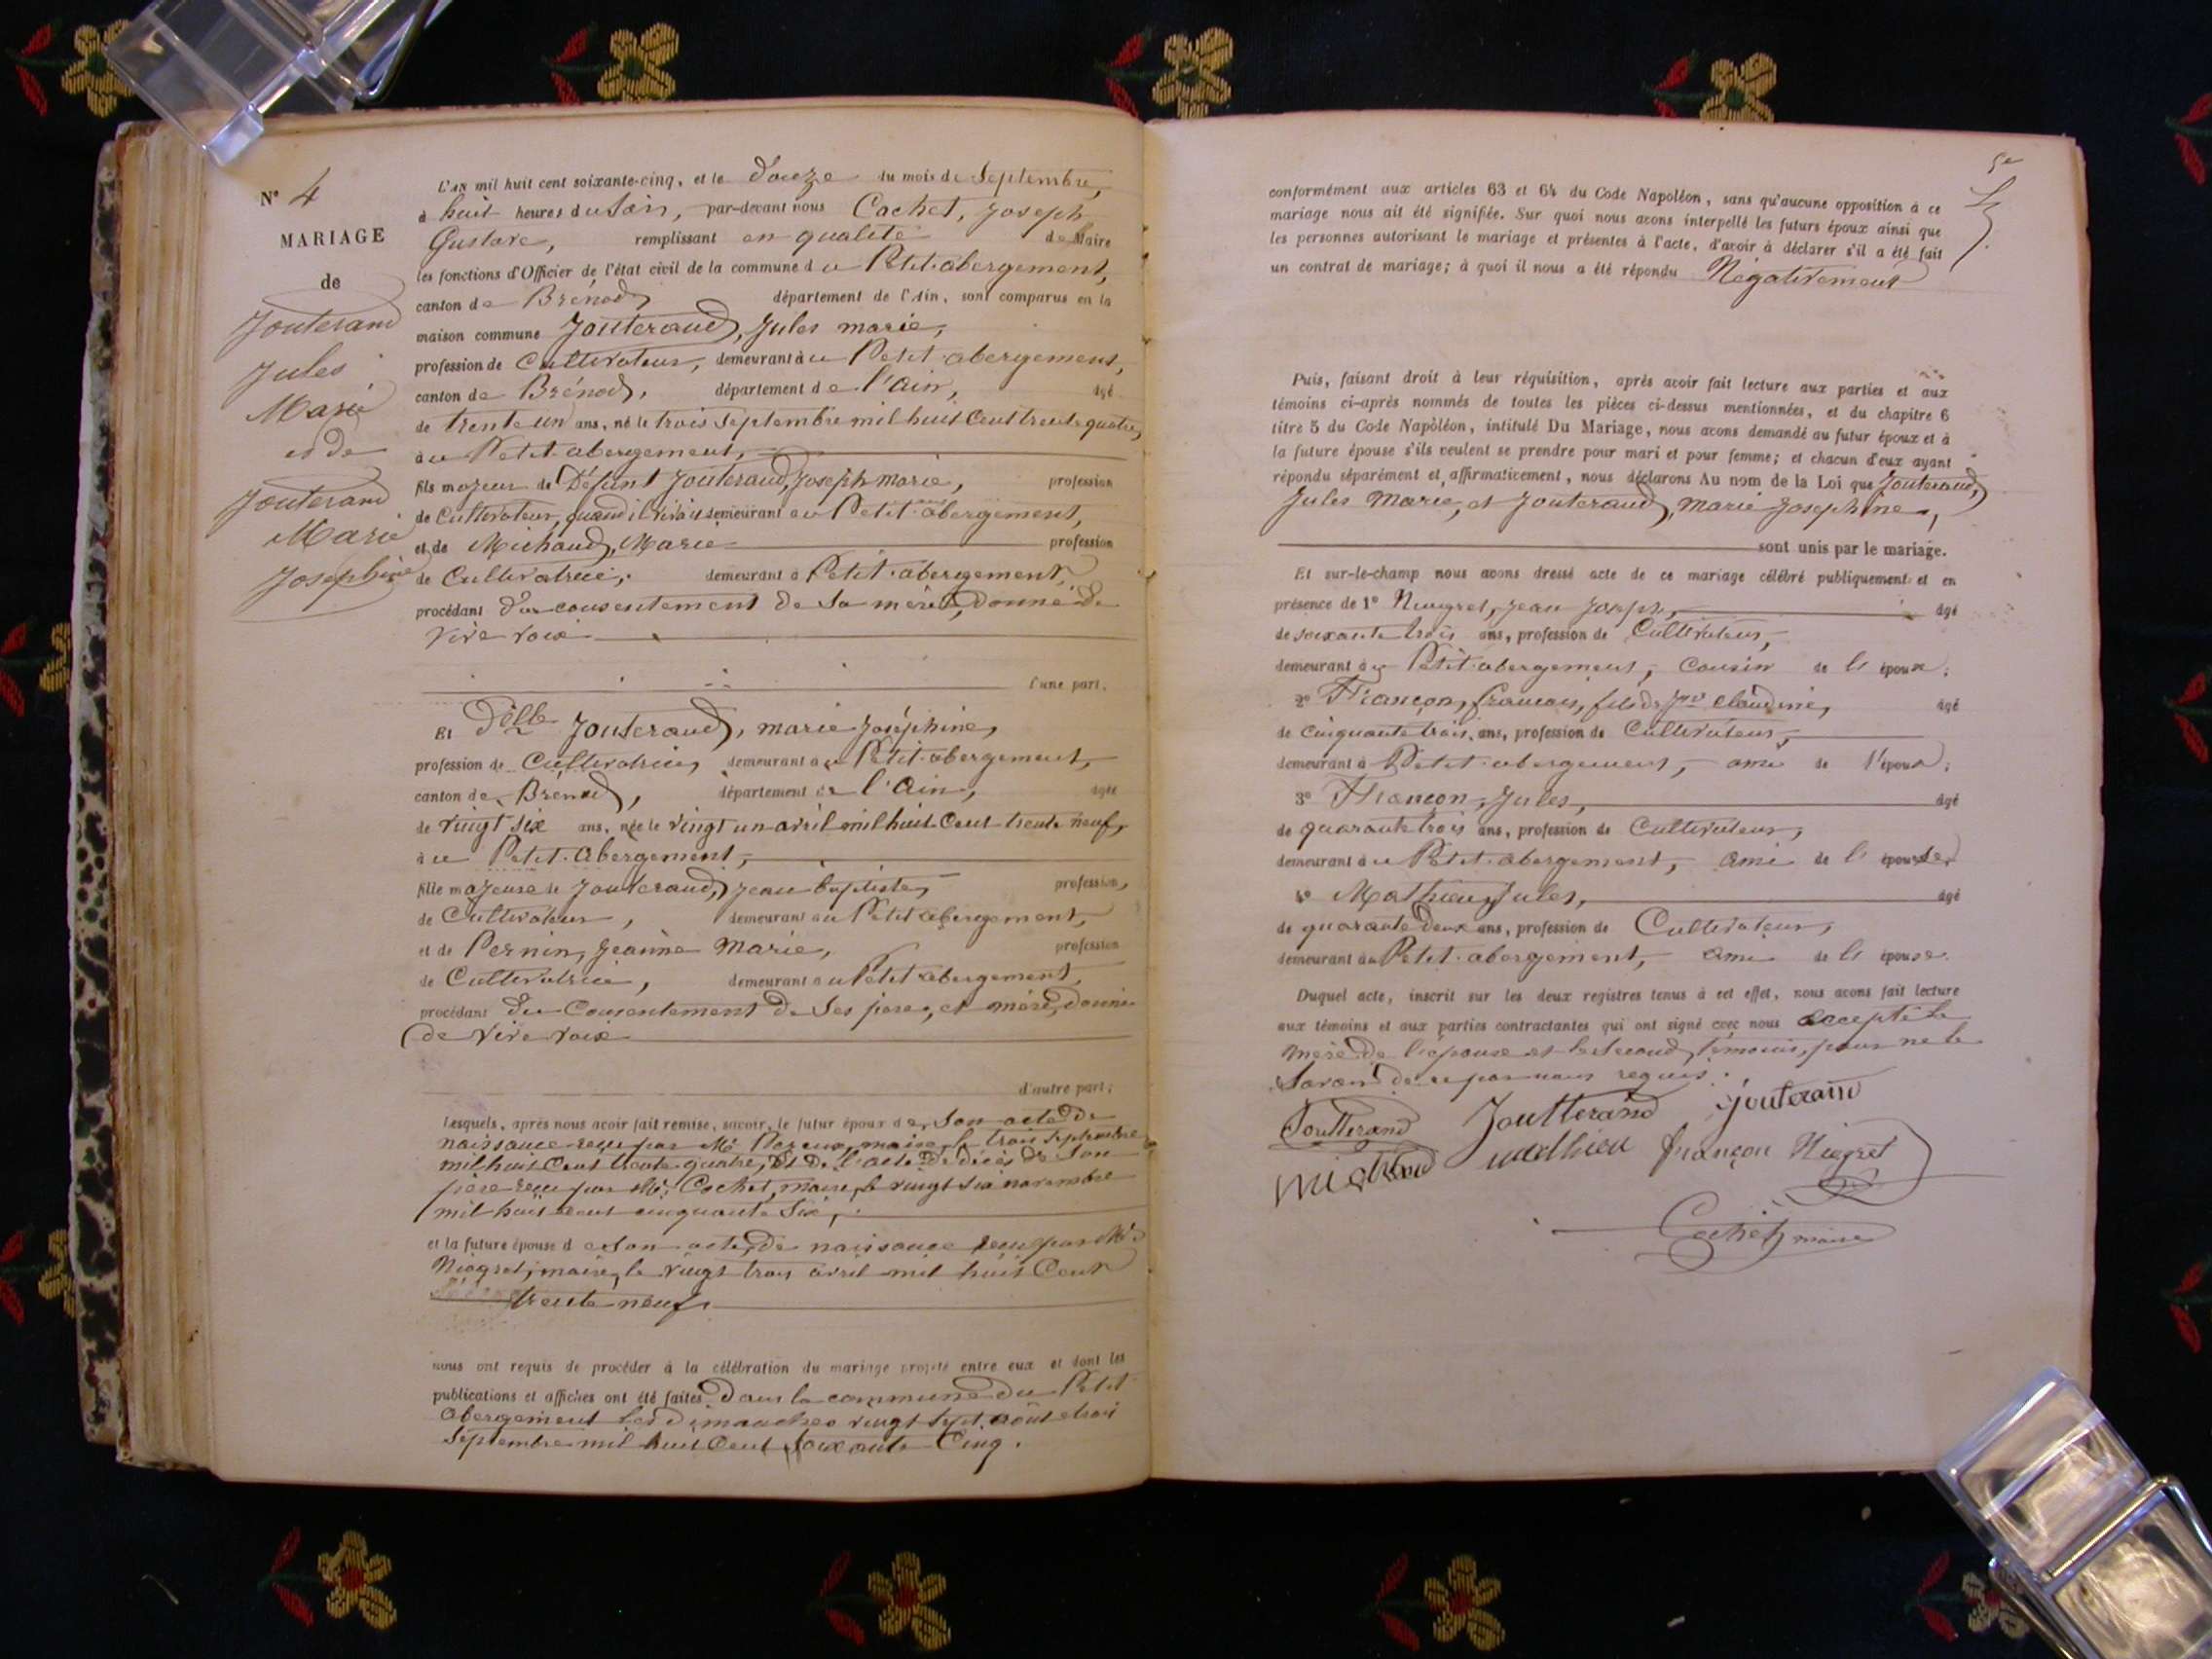 N° 4
MARIAGE
de
Jouterand
Jules
Marie
et de
Jouterand
Marie
Joséphine
L'AN mil huit cent soixante-cinq, et le Douze du mois de Septembre,
à huit heures du Soir, par-devant nous Cochet, Joseph
Gustave, remplissant en qualité de Maire
les fonctions d'Officier de l'état civil de la commune du Petit-abergement,
canton de Brénod département de l'Ain, sont comparus en la
maison commune Jouterand, Jules marie,
profession de Cultivateur, demeurant àu Petit abergement,
canton de Brénod, département de l'Ain, âgé
de trente un ans, né le trois Septembre mil huit Cent trente quatre,
àu Petit abergement,
fils majeur de Défunt Jouterand, Joseph marie, profession
de Cultivateur, quand il vivait demeurant au Petit abergement,
et de Michaud, Marie profession
de Cultivatrice, demeurant à Petit abergement,
procédant du consentement de Sa mère, donné de
vive voix
l'une part.
Et Dlle Jouterand, marie Joséphine,
profession de Cultivatrice, demeurant àu Petit abergement,
canton de Brénod, département de l'Ain, âgée
de vingt six ans, née le vingt un avril mil huit Cent trente neuf,
àu Petit Abergement,
fille majeure de Jouterand, Jean baptiste, profession,
de Cultivateur, demeurant au Petit abergement,
et de Pernin, Jeanne Marie, profession
de Cultivatrice, demeurant au Petit abergement,
procédant du Consentement de Ses père, et mère, donné
de Vive voix
d'autre part;
Lesquels, après nous avoir fait remise, savoir, le futur époux de Son acte de
naissance reçu par Mr maire, le trois Septembre
mil huit Cent trente quatre, Et de l'acte de décès de Son
père reçu par Mr Cochet, maire, le vingt six novembre
mil huit cent cinquante Six,
et la future épouse de Son acte de naissance reçu par Mr
Niogret, maire, le vingt trois avril mil huit Cent
trente neuf
nous ont requis de procéder à la célébration du mariage projeté entre eux et dont les
publications et affiches ont été faites Dans la commune du Petit
Abergement les Dimanches vingt Sept août et trois
Septembre mil huit Cent Soixante Cinq.
conformément aux articles 63 et 64 du Code Napoléon, sans qu'aucune opposition à ce
mariage nous ait été signifiée. Sur quoi nous avons interpellé les futurs époux ainsi que
les personnes autorisant le mariage et présentes à l'acte, d'avoir à déclarer s'il a été fait
un contrat de mariage; à quoi il nous a été répondu Négativement
Puis, faisant droit à leur réquisition, après avoir fait lecture aux parties et aux
témoins ci-après nommés de toutes les pièces ci-dessus mentionnées, et du chapitre 6
titre 5 du Code Napoléon, intitulé Du Mariage, nous avons demandé au futur époux et à
la future épouse s'ils veulent se prendre pour mari et pour femme; et chacun d'eux ayant
répondu séparément et affirmativement, nous déclarons Au nom de la Loi que Jouterand,
Jules Marie, et Jouterand, Marie Joséphine,
sont unis par le mariage.
Et sur-le-champ nous avons dressé acte de ce mariage célébré publiquement et en
présence de 1° Niogret, Jean Joseph, âgé
de soixante trois ans, profession de Cultivateur,
demeurant àu Petit abergement, cousin de l'époux;
2° Françon, françois, fils de Claudine, âgé
de Cinquante trois ans, profession de Cultivateur,
demeurant à Petit abergement, ami de l'époux;
3° Françon, Jules, âgé
de quarante trois ans, profession de Cultivateur,
demeurant àu Petit abergement, ami de l'épouse
4° Mathieu, Jules, âgé
de quarante Deux ans, profession de Cultivateur,
demeurant àu Petit abergement, ami de l'épouse.
Duquel acte, inscrit sur les deux registres tenus à cet effet, nous avons fait lecture
aux témoins et aux parties contractantes qui ont signé avec nous excepté la
mère de l'épouse et le Second témoin, pour ne le
Savoir de ce par nous requis.
Joutterand Joutterand Jouterand
michaud mathieu françon Niogret
Cochet maire